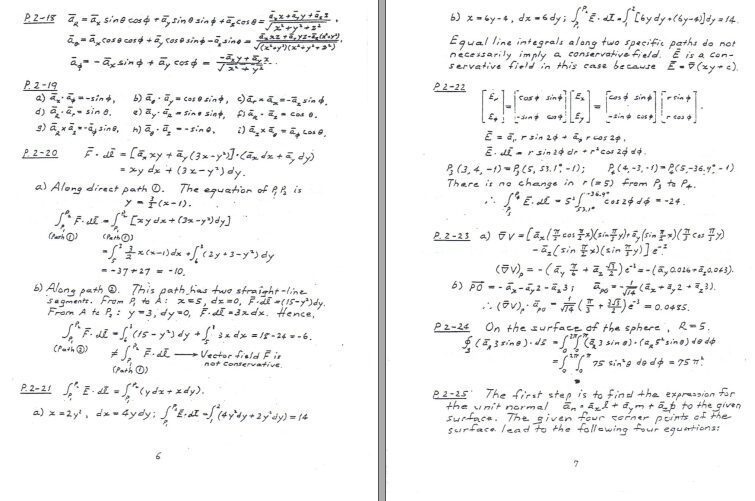 P.2-18 ā_R = ā_x sinθ cosφ + ā_y sinθ sinφ + ā_z cosθ = (ā_x x + ā_y y + ā_z z)/√(x²+y²+z²),
ā_θ = ā_x cosθ cosφ + ā_y cosθ sinφ − ā_z sinθ = (ā_x xz + ā_y yz − ā_z(x²+y²))/√((x²+y²)(x²+y²+z²)),
ā_φ = −ā_x sinφ + ā_y cosφ = (−ā_x y + ā_y x)/√(x²+y²).
P.2-19
a) ā_x·ā_φ = −sinφ, b) ā_θ·ā_y = cosθ sinφ, c) ā_r × ā_x = −ā_z sinφ,
d) ā_R·ā_r = sinθ. e) ā_y·ā_R = sinθ sinφ, f) ā_R·ā_z = cosθ.
g) ā_R × ā_z = −ā_φ sinθ, h) ā_θ·ā_z = −sinθ, i) ā_z × ā_θ = ā_φ cosθ.
P.2-20 F̄·dl̄ = [ā_x xy + ā_y (3x−y²)]·(ā_x dx + ā_y dy)
= xy dx + (3x−y²) dy.
a) Along direct path ①. The equation of P₁P₂ is
y = 3/2 (x−1).
∫_P₁^P₂ F̄·dl̄ = ∫_P₁^P₂ [xy dx + (3x−y²) dy]
(Path ①) (Path ①)
= ∫ 3/2 x(x−1) dx + ∫ (2y+3−y²) dy
= −37 + 27 = −10.
b) Along path ②. This path has two straight-line
segments. From P₁ to A: x=5, dx=0, F̄·dl̄ = (15−y²)dy.
From A to P₂: y=3, dy=0, F̄·dl̄ = 3x dx. Hence,
∫_P₁^P₂ F̄·dl̄ = ∫ (15−y²) dy + ∫ 3x dx = 18 − 24 = −6.
(Path ②) ≠ ∫_P₁^P₂ F̄·dl̄ → Vector field F̄ is
(Path ①) not conservative.
P.2-21 ∫_P₁^P₂ Ē·dl̄ = ∫_P₁^P₂ (y dx + x dy).
a) x = 2y², dx = 4y dy; ∫_P₁^P₂ Ē·dl̄ = ∫₁² (4y² dy + 2y² dy) = 14
6
b) x = 6y−4, dx = 6 dy; ∫_P₁^P₂ Ē·dl̄ = ∫₁² [6y dy + (6y−4)] dy = 14.
Equal line integrals along two specific paths do not
necessarily imply a conservative field. Ē is a con-
servative field in this case because Ē = ∇̄(xy+c).
P.2-22
[E_r; E_φ] = [cosφ sinφ; −sinφ cosφ] [E_x; E_y] = [cosφ sinφ; −sinφ cosφ] [r sinφ; r cosφ].
Ē = ā_r r sin2φ + ā_φ r cos2φ.
Ē·dl̄ = r sin2φ dr + r² cos2φ dφ.
P₃(3, 4, −1) = P₃(5, 53.1°, −1); P₄(4, −3, −1) = P₄(5, −36.9°, −1)
There is no change in r (=5) from P₃ to P₄.
∴ ∫_P₃^P₄ Ē·dl̄ = 5² ∫_53.1°^−36.9° cos2φ dφ = −24.
P.2-23 a) ∇̄V = [ā_x(π/2 cos π/2 x)(sin π/3 y) + ā_y(sin π/2 x)(π/3 cos π/3 y)
− ā_z(sin π/2 x)(sin π/3 y)] e⁻ᶻ
(∇̄V)_P = −(ā_y π/6 + ā_z √3/2) e⁻³ = −(ā_y 0.026 + ā_z 0.043).
b) P̄Ō = −ā_x − ā_y 2 − ā_z 3; ā_PO = −1/√14 (ā_x + ā_y 2 + ā_z 3).
∴ (∇̄V)_P·ā_PO = 1/√14 (π/3 + 3√3/2) e⁻³ = 0.0485.
P.2-24 On the surface of the sphere, R=5.
∮_S (ā_R 3 sinθ)·ds̄ = ∫₀^2π ∫₀^π (ā_R 3 sinθ)·(ā_R 5² sinθ) dθ dφ
= ∫₀^2π ∫₀^π 75 sin²θ dθ dφ = 75π².
P.2-25 The first step is to find the expression for
the unit normal ā_n = ā_x l + ā_y m + ā_z p to the given
surface. The given four corner points of the
surface lead to the following four equations:
7